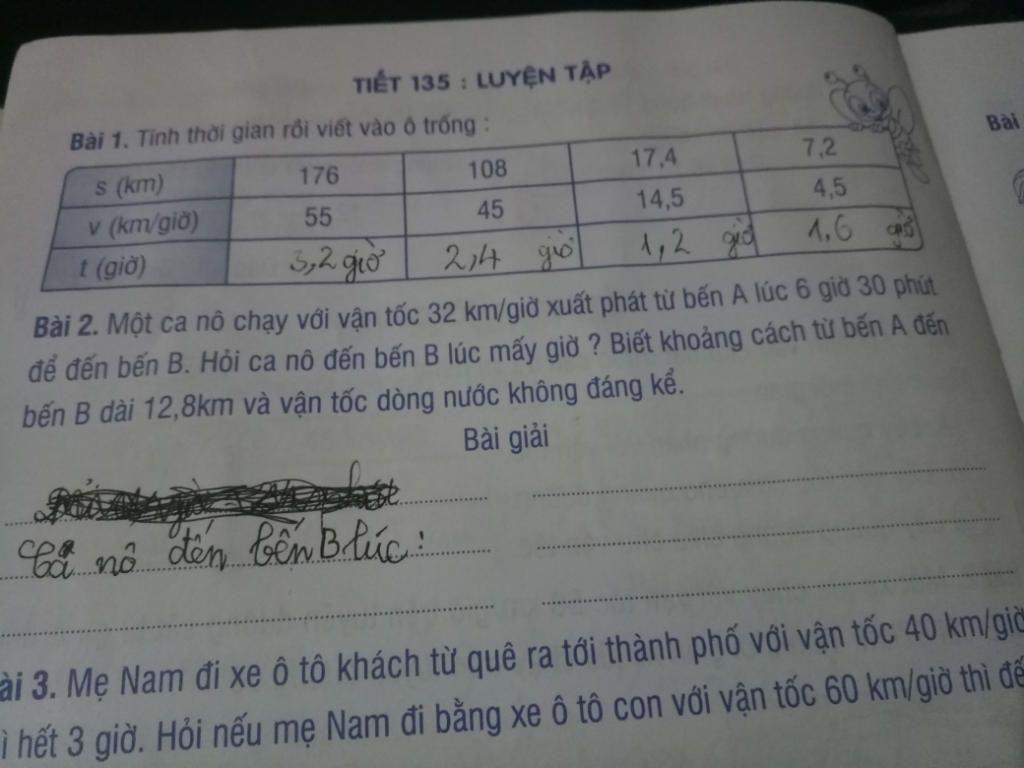 TIẾT 135 : LUYỆN TẬP
Bài 1. Tính thời gian rồi viết vào ô trống :
s (km) 176 108 17,4 7,2
v (km/giờ) 55 45 14,5 4,5
t (giờ) 3,2 giờ 2,4 giờ 1,2 giờ 1,6 giờ
Bài 2. Một ca nô chạy với vận tốc 32 km/giờ xuất phát từ bến A lúc 6 giờ 30 phút
để đến bến B. Hỏi ca nô đến bến B lúc mấy giờ ? Biết khoảng cách từ bến A đến
bến B dài 12,8km và vận tốc dòng nước không đáng kể.
Bài giải
Ca nô đến bến B lúc :
ài 3. Mẹ Nam đi xe ô tô khách từ quê ra tới thành phố với vận tốc 40 km/giờ
ì hết 3 giờ. Hỏi nếu mẹ Nam đi bằng xe ô tô con với vận tốc 60 km/giờ thì đế
Bài